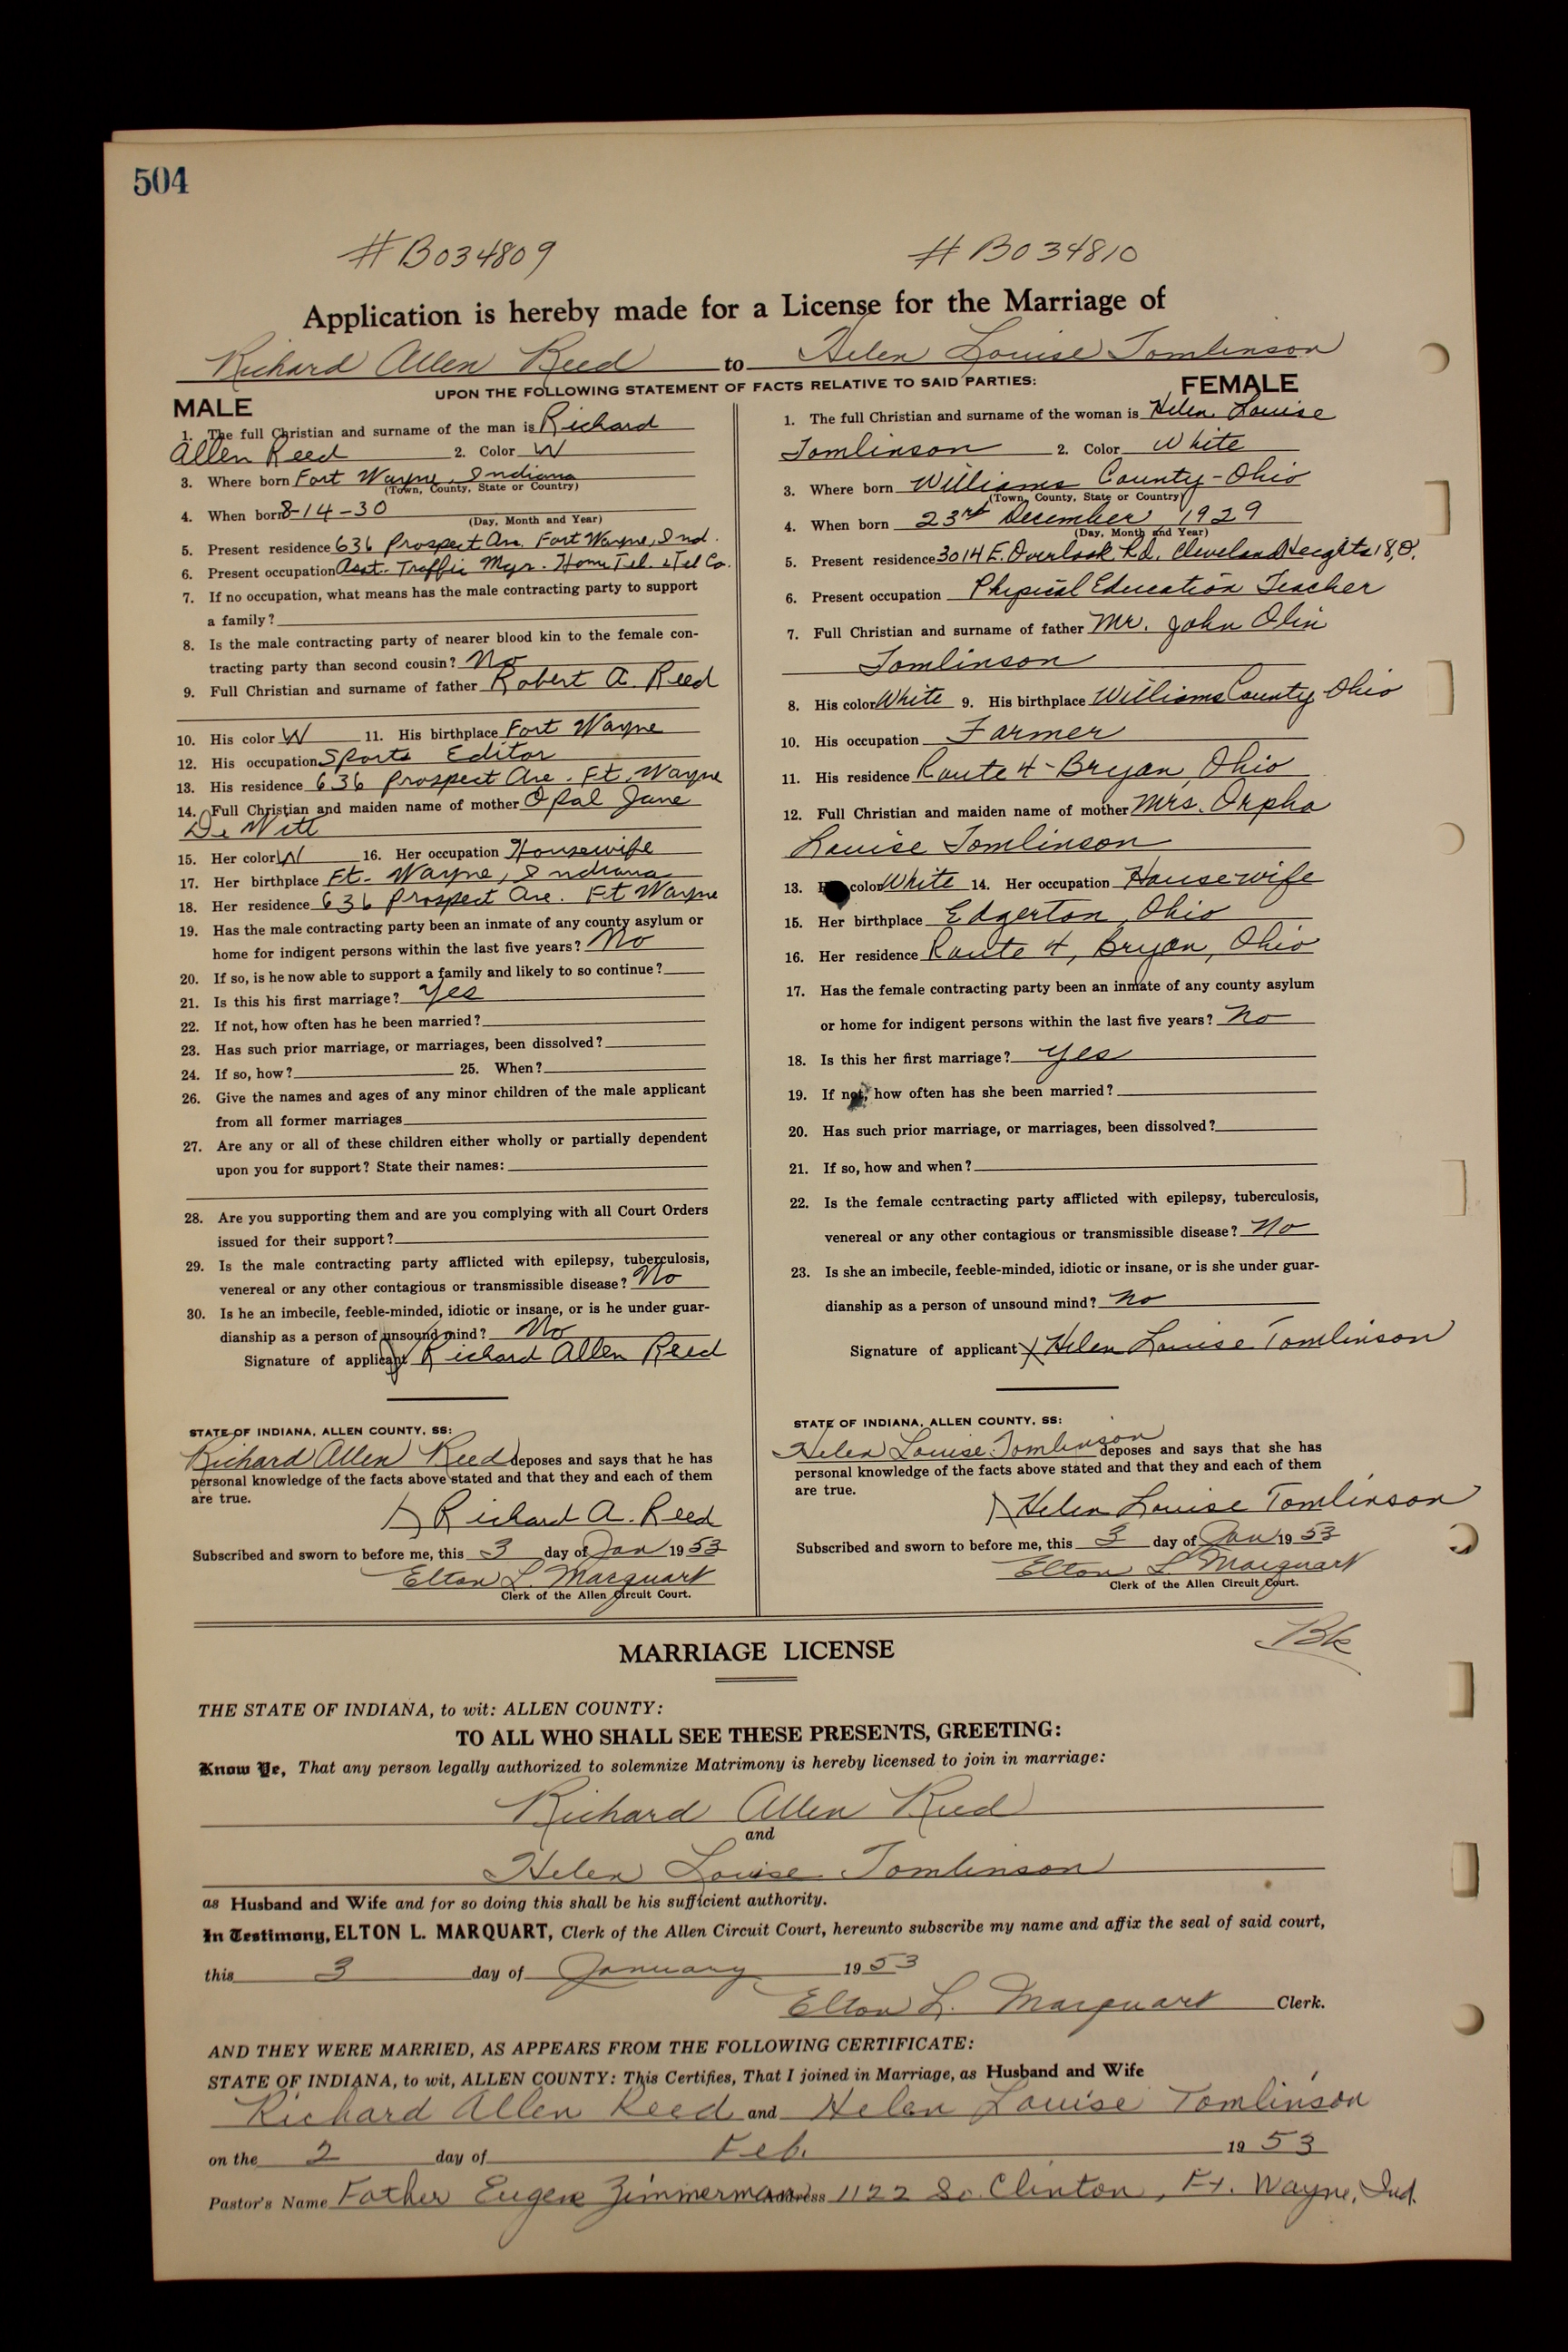 504
#B034809 #B034810
Application is hereby made for a License for the Marriage of
Richard Allen Reed to Helen Louise Tomlinson
UPON THE FOLLOWING STATEMENT OF FACTS RELATIVE TO SAID PARTIES:
MALE
1. The full Christian and surname of the man is Richard
Allen Reed 2. Color W
3. Where born Fort Wayne, Indiana
(Town, County, State or Country)
4. When born 8-14-30
(Day, Month and Year)
5. Present residence 636 Prospect Ave. Fort Wayne, Ind.
6. Present occupation Asst. Traffic Mgr. Home Tel. & Tel Co.
7. If no occupation, what means has the male contracting party to support
a family?
8. Is the male contracting party of nearer blood kin to the female con-
tracting party than second cousin? No
9. Full Christian and surname of father Robert A. Reed
10. His color W 11. His birthplace Fort Wayne
12. His occupation Sports Editor
13. His residence 636 Prospect Ave. Ft. Wayne
14. Full Christian and maiden name of mother Opal Jane
De Witt
15. Her color W 16. Her occupation Housewife
17. Her birthplace Ft. Wayne, Indiana
18. Her residence 636 Prospect Ave. Ft Wayne
19. Has the male contracting party been an inmate of any county asylum or
home for indigent persons within the last five years? No
20. If so, is he now able to support a family and likely to so continue?
21. Is this his first marriage? Yes
22. If not, how often has he been married?
23. Has such prior marriage, or marriages, been dissolved?
24. If so, how? 25. When?
26. Give the names and ages of any minor children of the male applicant
from all former marriages
27. Are any or all of these children either wholly or partially dependent
upon you for support? State their names:
28. Are you supporting them and are you complying with all Court Orders
issued for their support?
29. Is the male contracting party afflicted with epilepsy, tuberculosis,
venereal or any other contagious or transmissible disease? No
30. Is he an imbecile, feeble-minded, idiotic or insane, or is he under guar-
dianship as a person of unsound mind? No
Signature of applicant X Richard Allen Reed
STATE OF INDIANA, ALLEN COUNTY, SS:
Richard Allen Reed deposes and says that he has
personal knowledge of the facts above stated and that they and each of them
are true.
X Richard A. Reed
Subscribed and sworn to before me, this 3 day of Jan 1953
Elton L. Marquart
Clerk of the Allen Circuit Court.
FEMALE
1. The full Christian and surname of the woman is Helen Louise
Tomlinson 2. Color White
3. Where born Williams County-Ohio
(Town, County, State or Country)
4. When born 23rd December 1929
(Day, Month and Year)
5. Present residence 3014 E. Overlook Rd. Cleveland Heights 18, O.
6. Present occupation Physical Education Teacher
7. Full Christian and surname of father Mr. John Olin
Tomlinson
8. His color White 9. His birthplace Williams County Ohio
10. His occupation Farmer
11. His residence Route 4-Bryan, Ohio
12. Full Christian and maiden name of mother Mrs. Orpha
Louise Tomlinson
13. color White 14. Her occupation Housewife
15. Her birthplace Edgerton, Ohio
16. Her residence Route 4, Bryan, Ohio
17. Has the female contracting party been an inmate of any county asylum
or home for indigent persons within the last five years? No
18. Is this her first marriage? Yes
19. If not, how often has she been married?
20. Has such prior marriage, or marriages, been dissolved?
21. If so, how and when?
22. Is the female contracting party afflicted with epilepsy, tuberculosis,
venereal or any other contagious or transmissible disease? No
23. Is she an imbecile, feeble-minded, idiotic or insane, or is she under guar-
dianship as a person of unsound mind? No
Signature of applicant X Helen Louise Tomlinson
STATE OF INDIANA, ALLEN COUNTY, SS:
Helen Louise Tomlinson deposes and says that she has
personal knowledge of the facts above stated and that they and each of them
are true.
X Helen Louise Tomlinson
Subscribed and sworn to before me, this 3 day of Jan 1953
Elton L. Marquart
Clerk of the Allen Circuit Court.
Bk
MARRIAGE LICENSE
THE STATE OF INDIANA, to wit: ALLEN COUNTY:
TO ALL WHO SHALL SEE THESE PRESENTS, GREETING:
Know Ye, That any person legally authorized to solemnize Matrimony is hereby licensed to join in marriage:
Richard Allen Reed
and
Helen Louise Tomlinson
as Husband and Wife and for so doing this shall be his sufficient authority.
In Testimony, ELTON L. MARQUART, Clerk of the Allen Circuit Court, hereunto subscribe my name and affix the seal of said court,
this 3 day of January 1953
Elton L. Marquart Clerk.
AND THEY WERE MARRIED, AS APPEARS FROM THE FOLLOWING CERTIFICATE:
STATE OF INDIANA, to wit, ALLEN COUNTY: This Certifies, That I joined in Marriage, as Husband and Wife
Richard Allen Reed and Helen Louise Tomlinson
on the 2 day of Feb. 1953
Pastor's Name Father Eugene Zimmerman Address 1122 So. Clinton, Ft. Wayne, Ind.